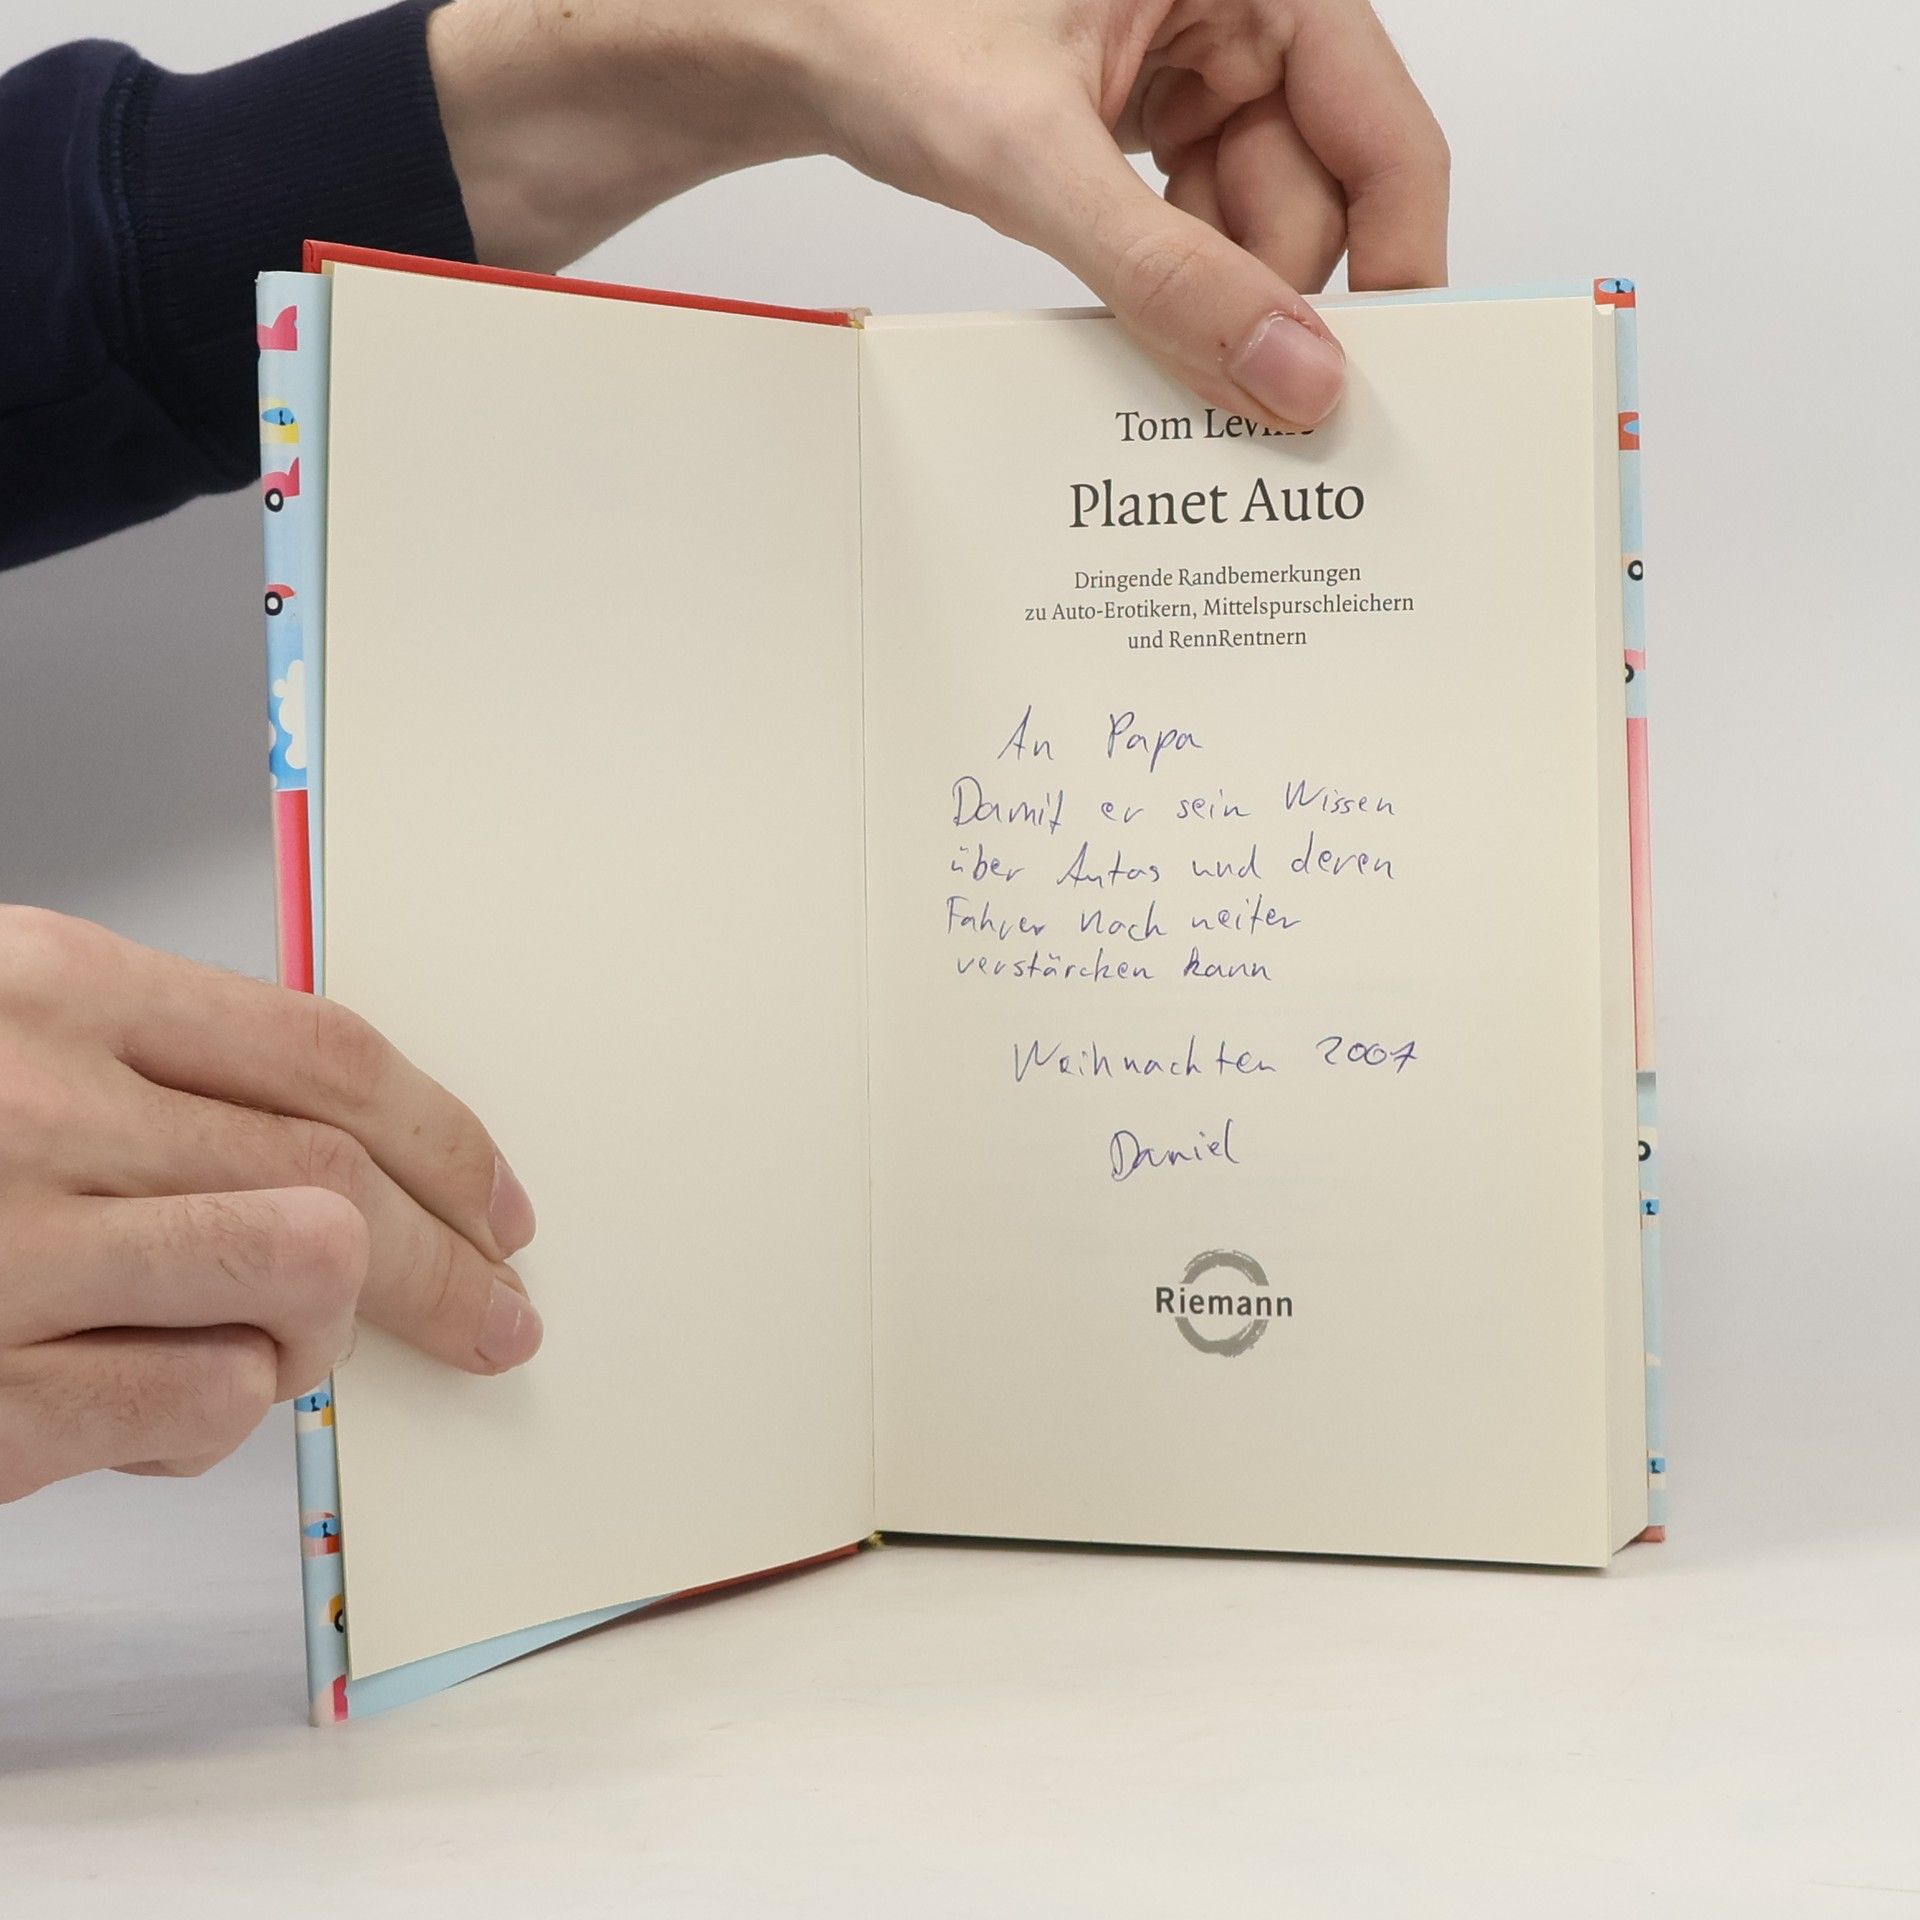 Tom Levine
Planet Auto
Dringende Randbemerkungen
zu Auto-Erotikern, Mittelspurschleichern
und RennRentnern
An Papa
Damit er sein Wissen
über Autos und deren
Fahrer noch weiter
verstärcken kann
Weihnachten 2007
Daniel
Riemann